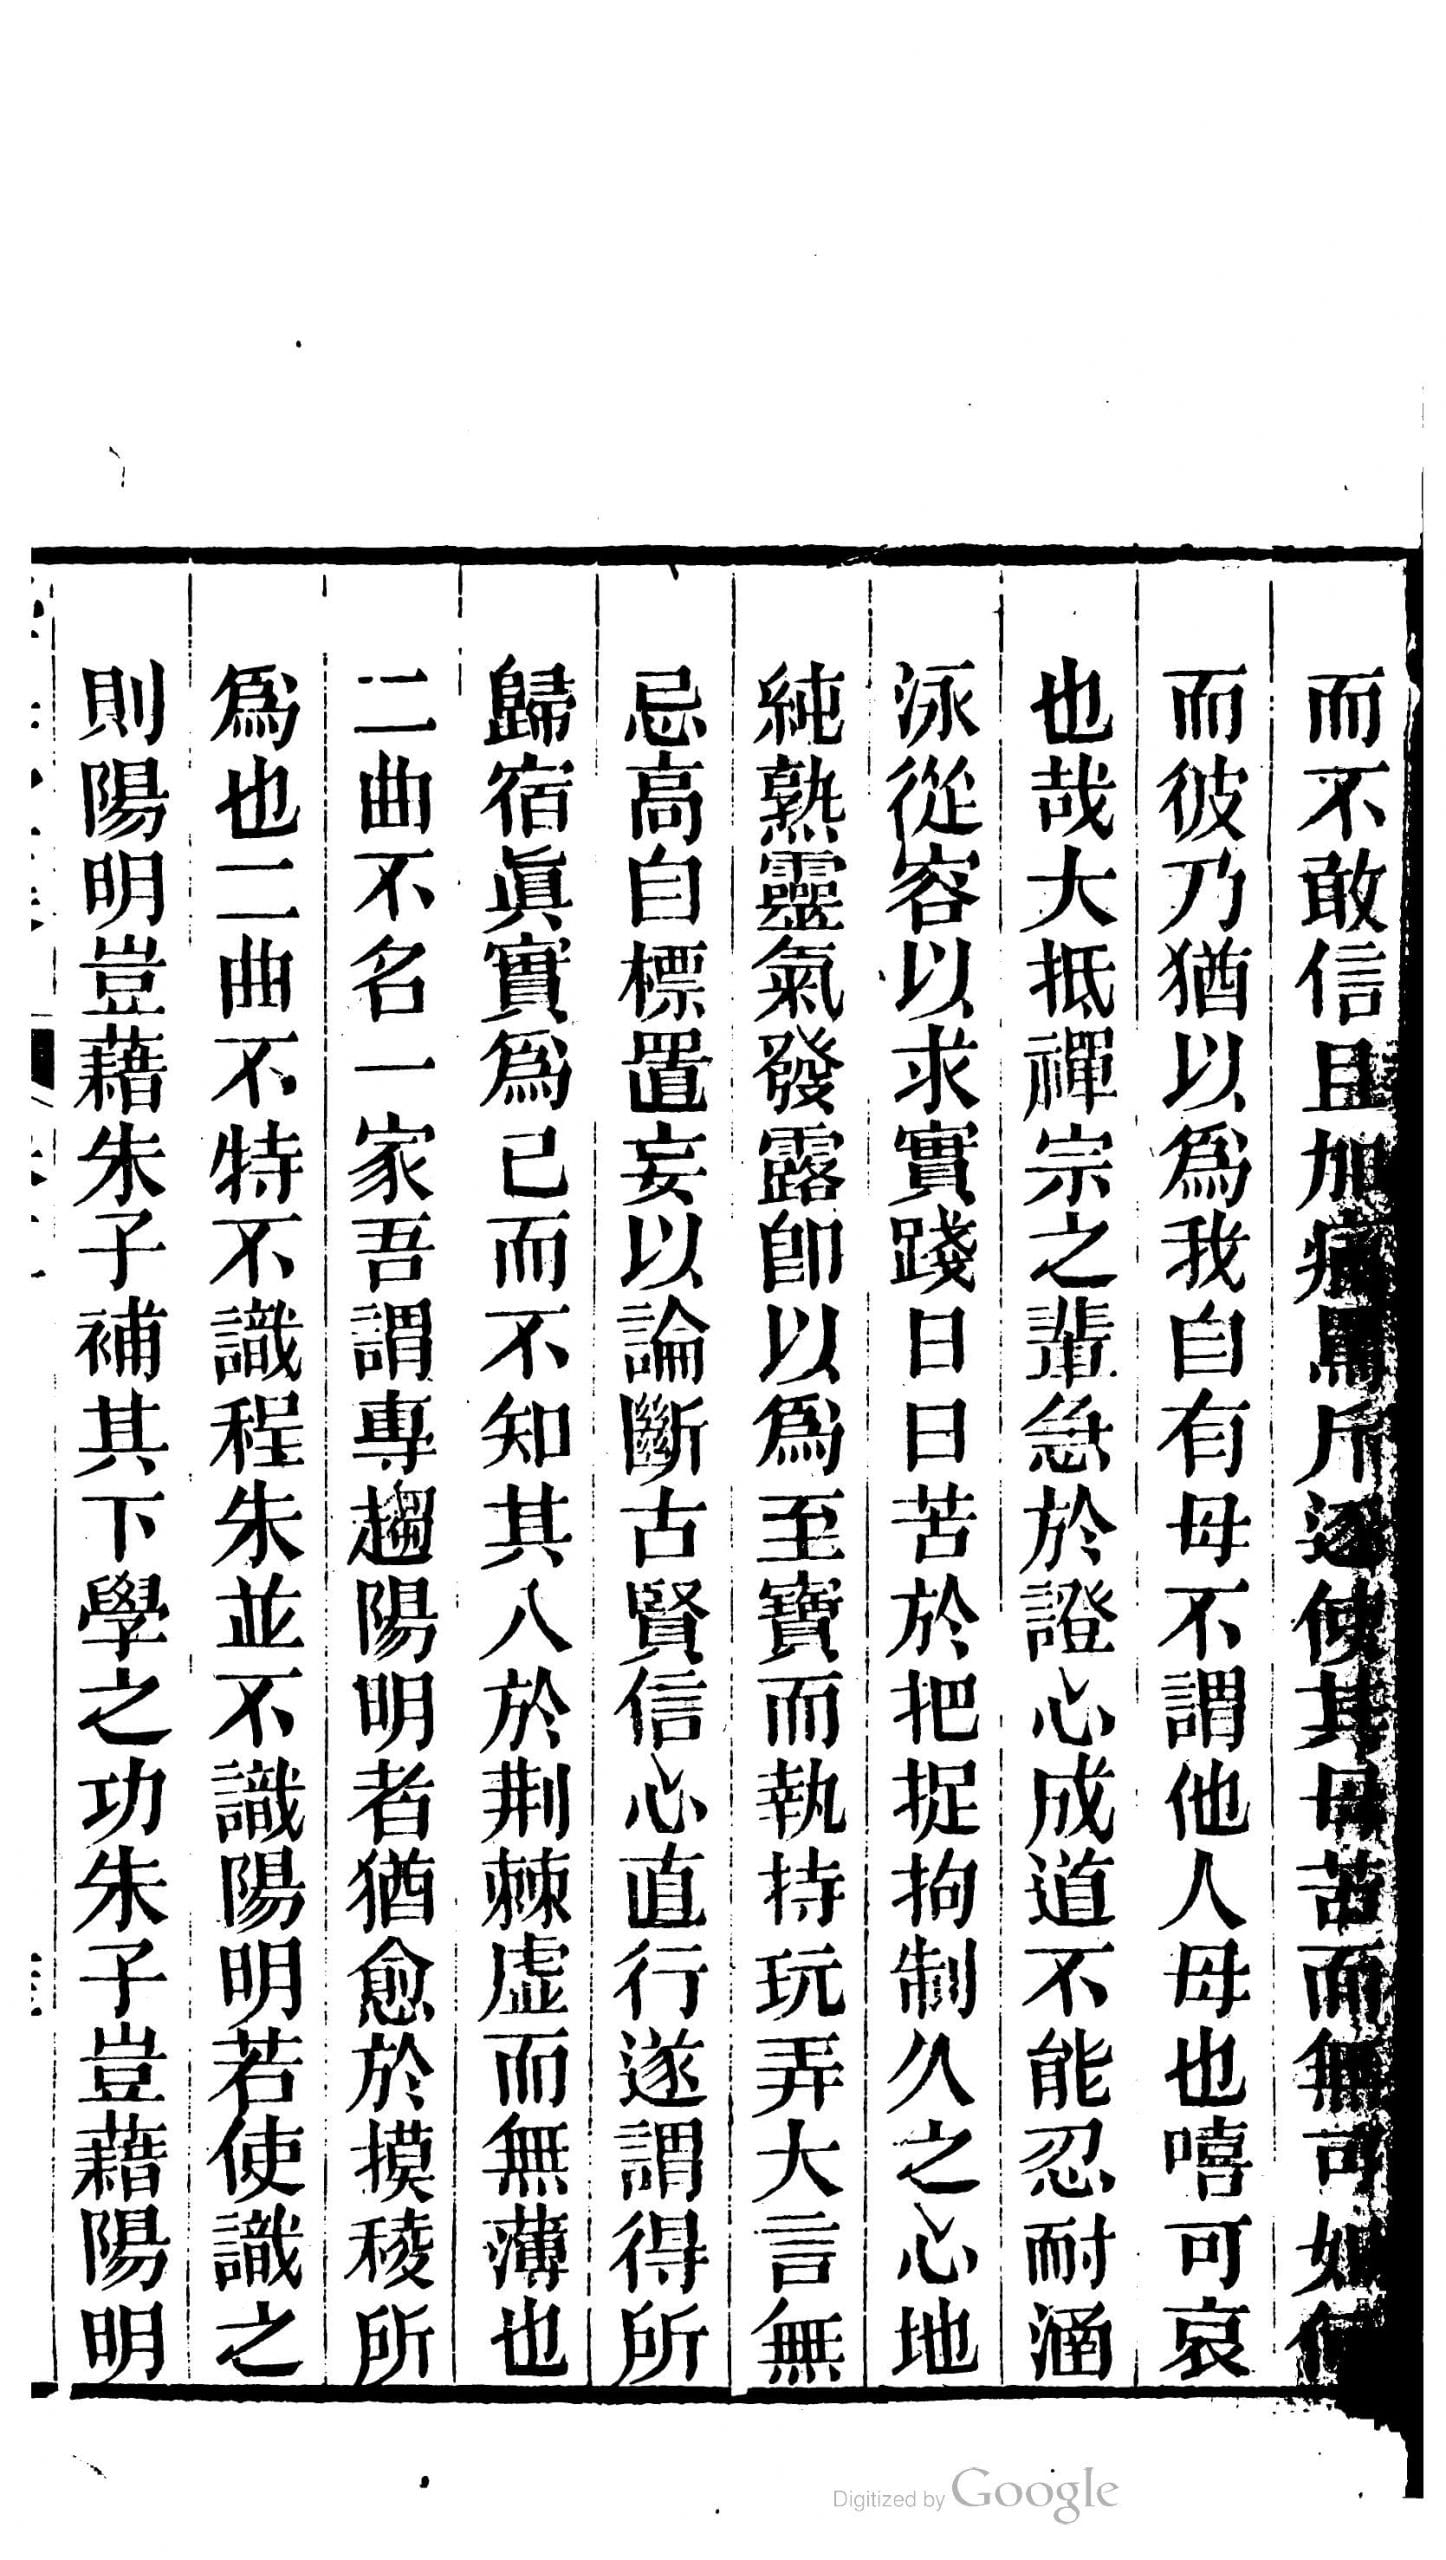 而不敢信且加痛罵斥逐使其母苦而無可如何
而彼乃猶以爲我自有母不謂他人母也嘻可哀
也哉大抵禪宗之輩急於證心成道不能忍耐涵
泳從容以求實踐日日苦於把捉拘制久之心地
純熟靈氣發露卽以爲至寶而執持玩弄大言無
忌高自標置妄以論斷古賢信心直行遂謂得所
歸宿眞實爲已而不知其入於荆棘虛而無薄也
二曲不名一家吾謂專趨陽明者猶愈於摸稜所
爲也二曲不特不識程朱並不識陽明若使識之
則陽明豈藉朱子補其下學之功朱子豈藉陽明
Digitized by Google